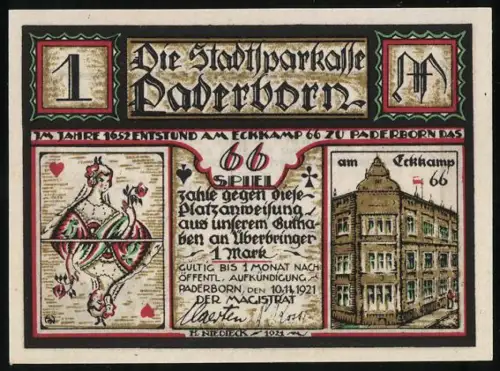 1
Die Stadtsparkasse
M
Paderborn
IM JAHRE 1652 ENTSTUND AM ECKKAMP 66 ZU PADERBORN DAS
66
SPIEL
zahle gegen diese
Platzanweisung
aus unserem Gutha-
ben an Überbringer
1 Mark
GÜLTIG BIS 1 MONAT NACH
ÖFFENTL. AUFKÜNDIGUNG
PADERBORN, DEN 10.11.1921
DER MAGISTRAT
H. NIEDIECK 1921
am Eckkamp
66